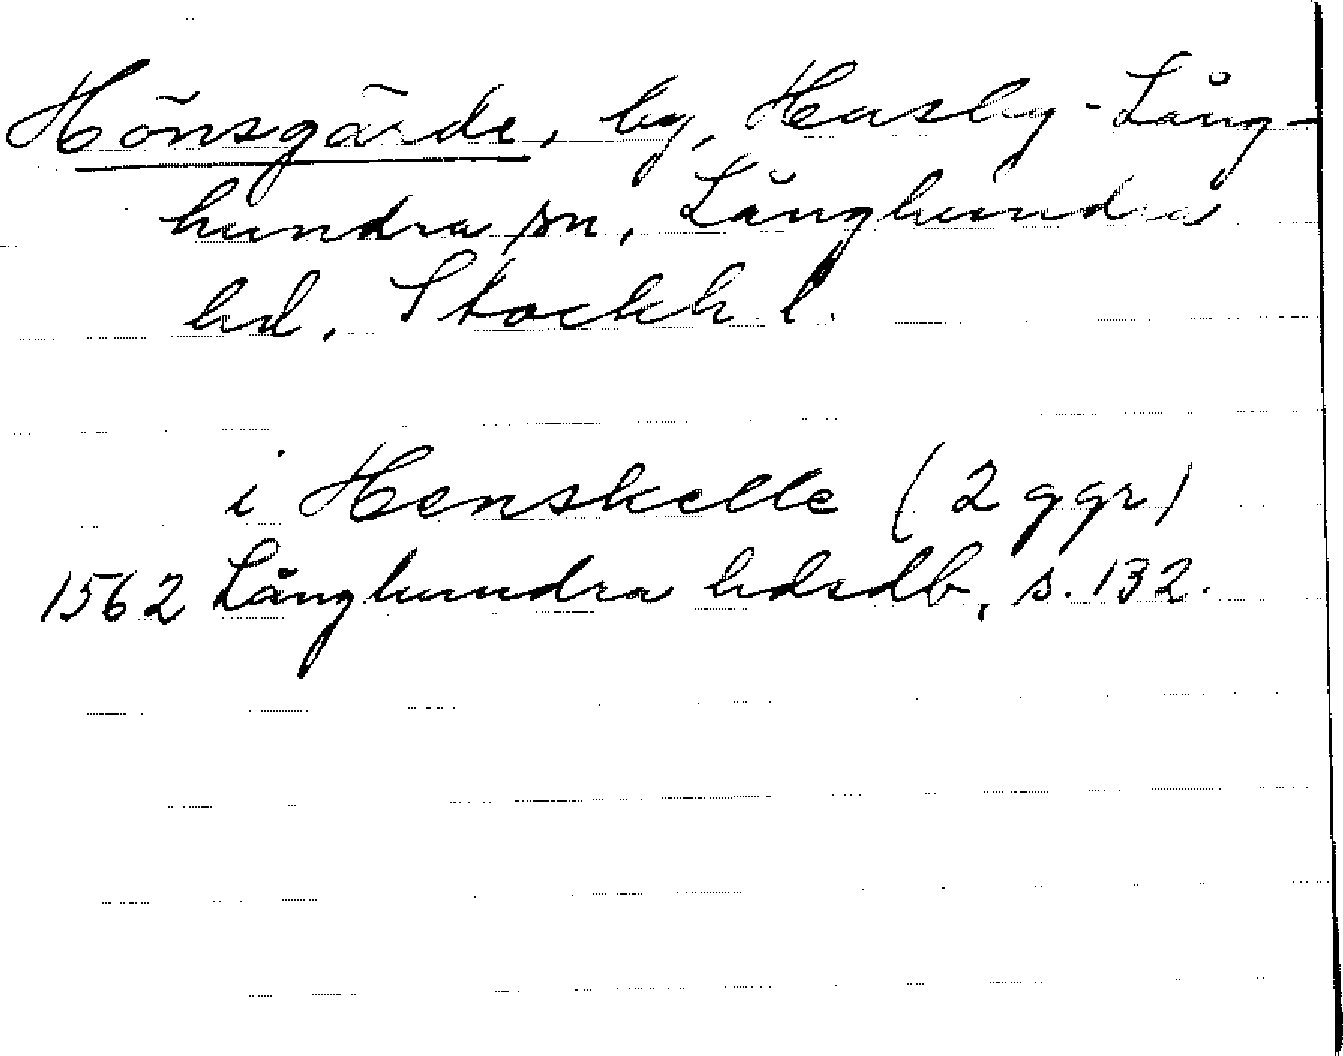 Hönsgärde, by, Husby-Lång-
hundra sn, Långhundra
hd. Stockh l.
i Henskelle (2 ggr)
1562 Långhundra hdsdb, s. 132.